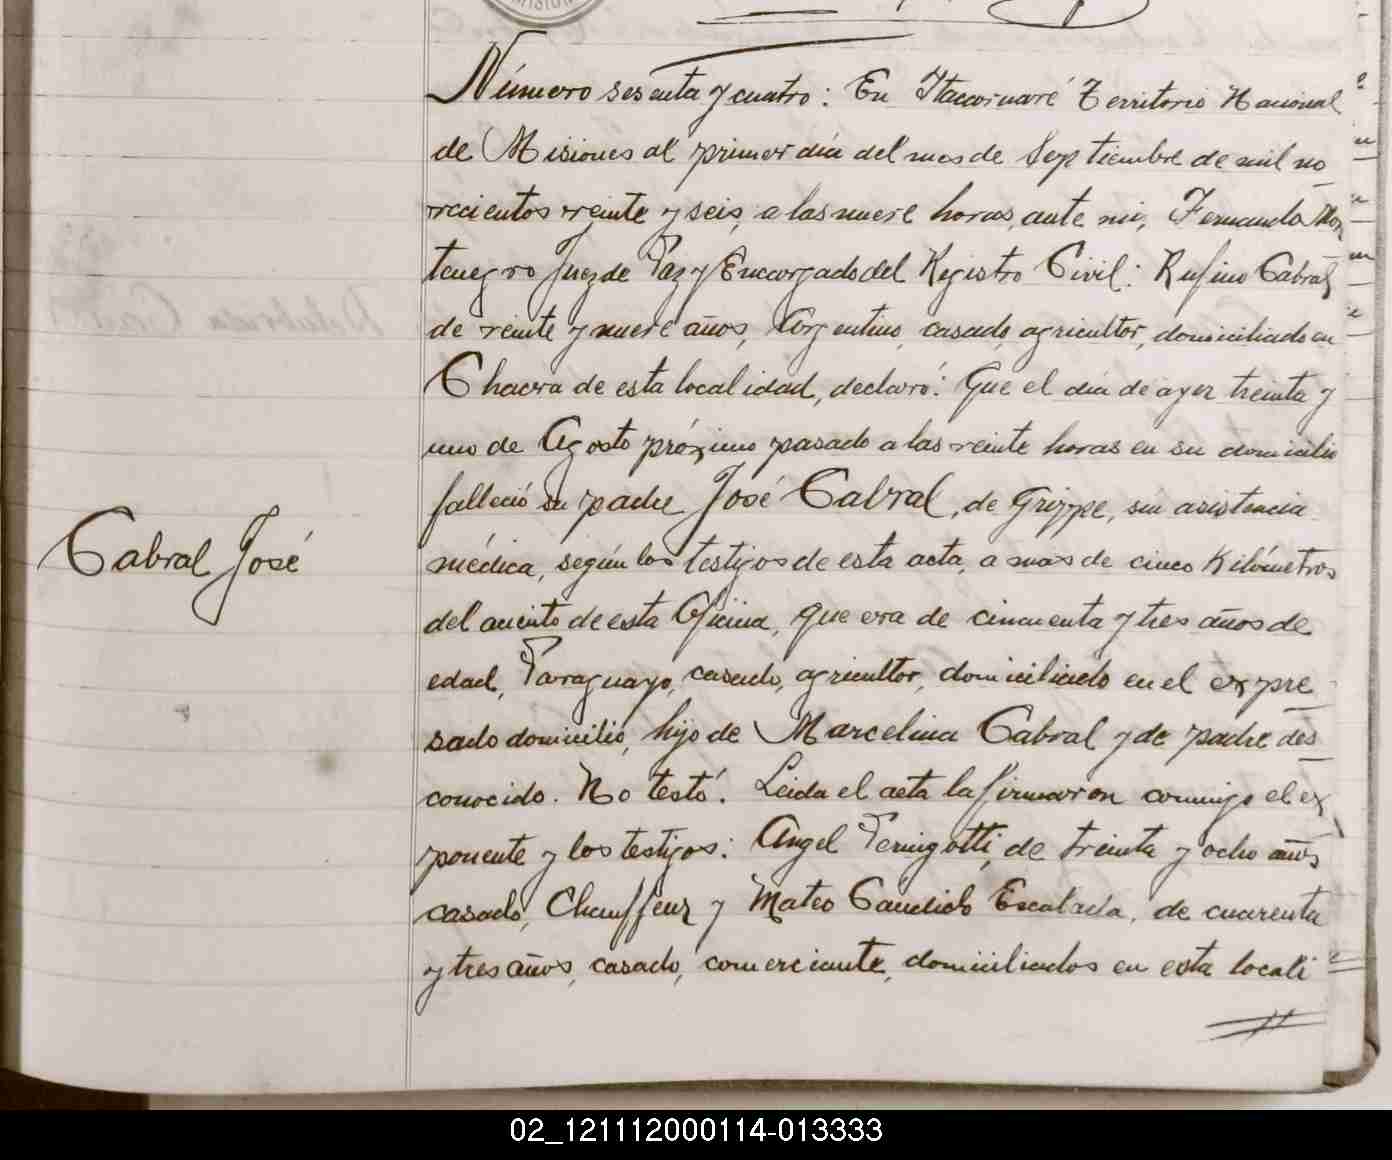 Número sesenta y cuatro: En Itacaruaré Territorio Nacional
de Misiones al primer día del mes de Septiembre de mil no
vecientos veinte y seis, a las nueve horas, ante mi, Fernando Mon
tenegro Juez de Paz y Encargado del Registro Civil: Rufino Cabral
de veinte y nueve años, Argentino, casado, agricultor, domiciliado en
Chacra de esta localidad, declaró: Que el día de ayer treinta y
uno de Agosto próximo pasado a las veinte horas en su domicilio
falleció su padre José Cabral, de Grippe, sin asistencia
Cabral José
médica, según los testigos de esta acta, a mas de cinco Kilómetros
del asiento de esta Oficina, que era de cincuenta y tres años de
edad, Paraguayo, casado, agricultor, domiciliado en el expre
sado domicilio, hijo de Marcelina Cabral y de padre des
conocido. No testó. Leida el acta la firmaron conmigo el ex
ponente y los testigos: Angel Pernigotti, de treinta y ocho años
casado, Chauffeur y Mateo Cándido Escalada, de cuarenta
y tres años, casado, comerciante, domiciliados en esta locali
02_121112000114-013333